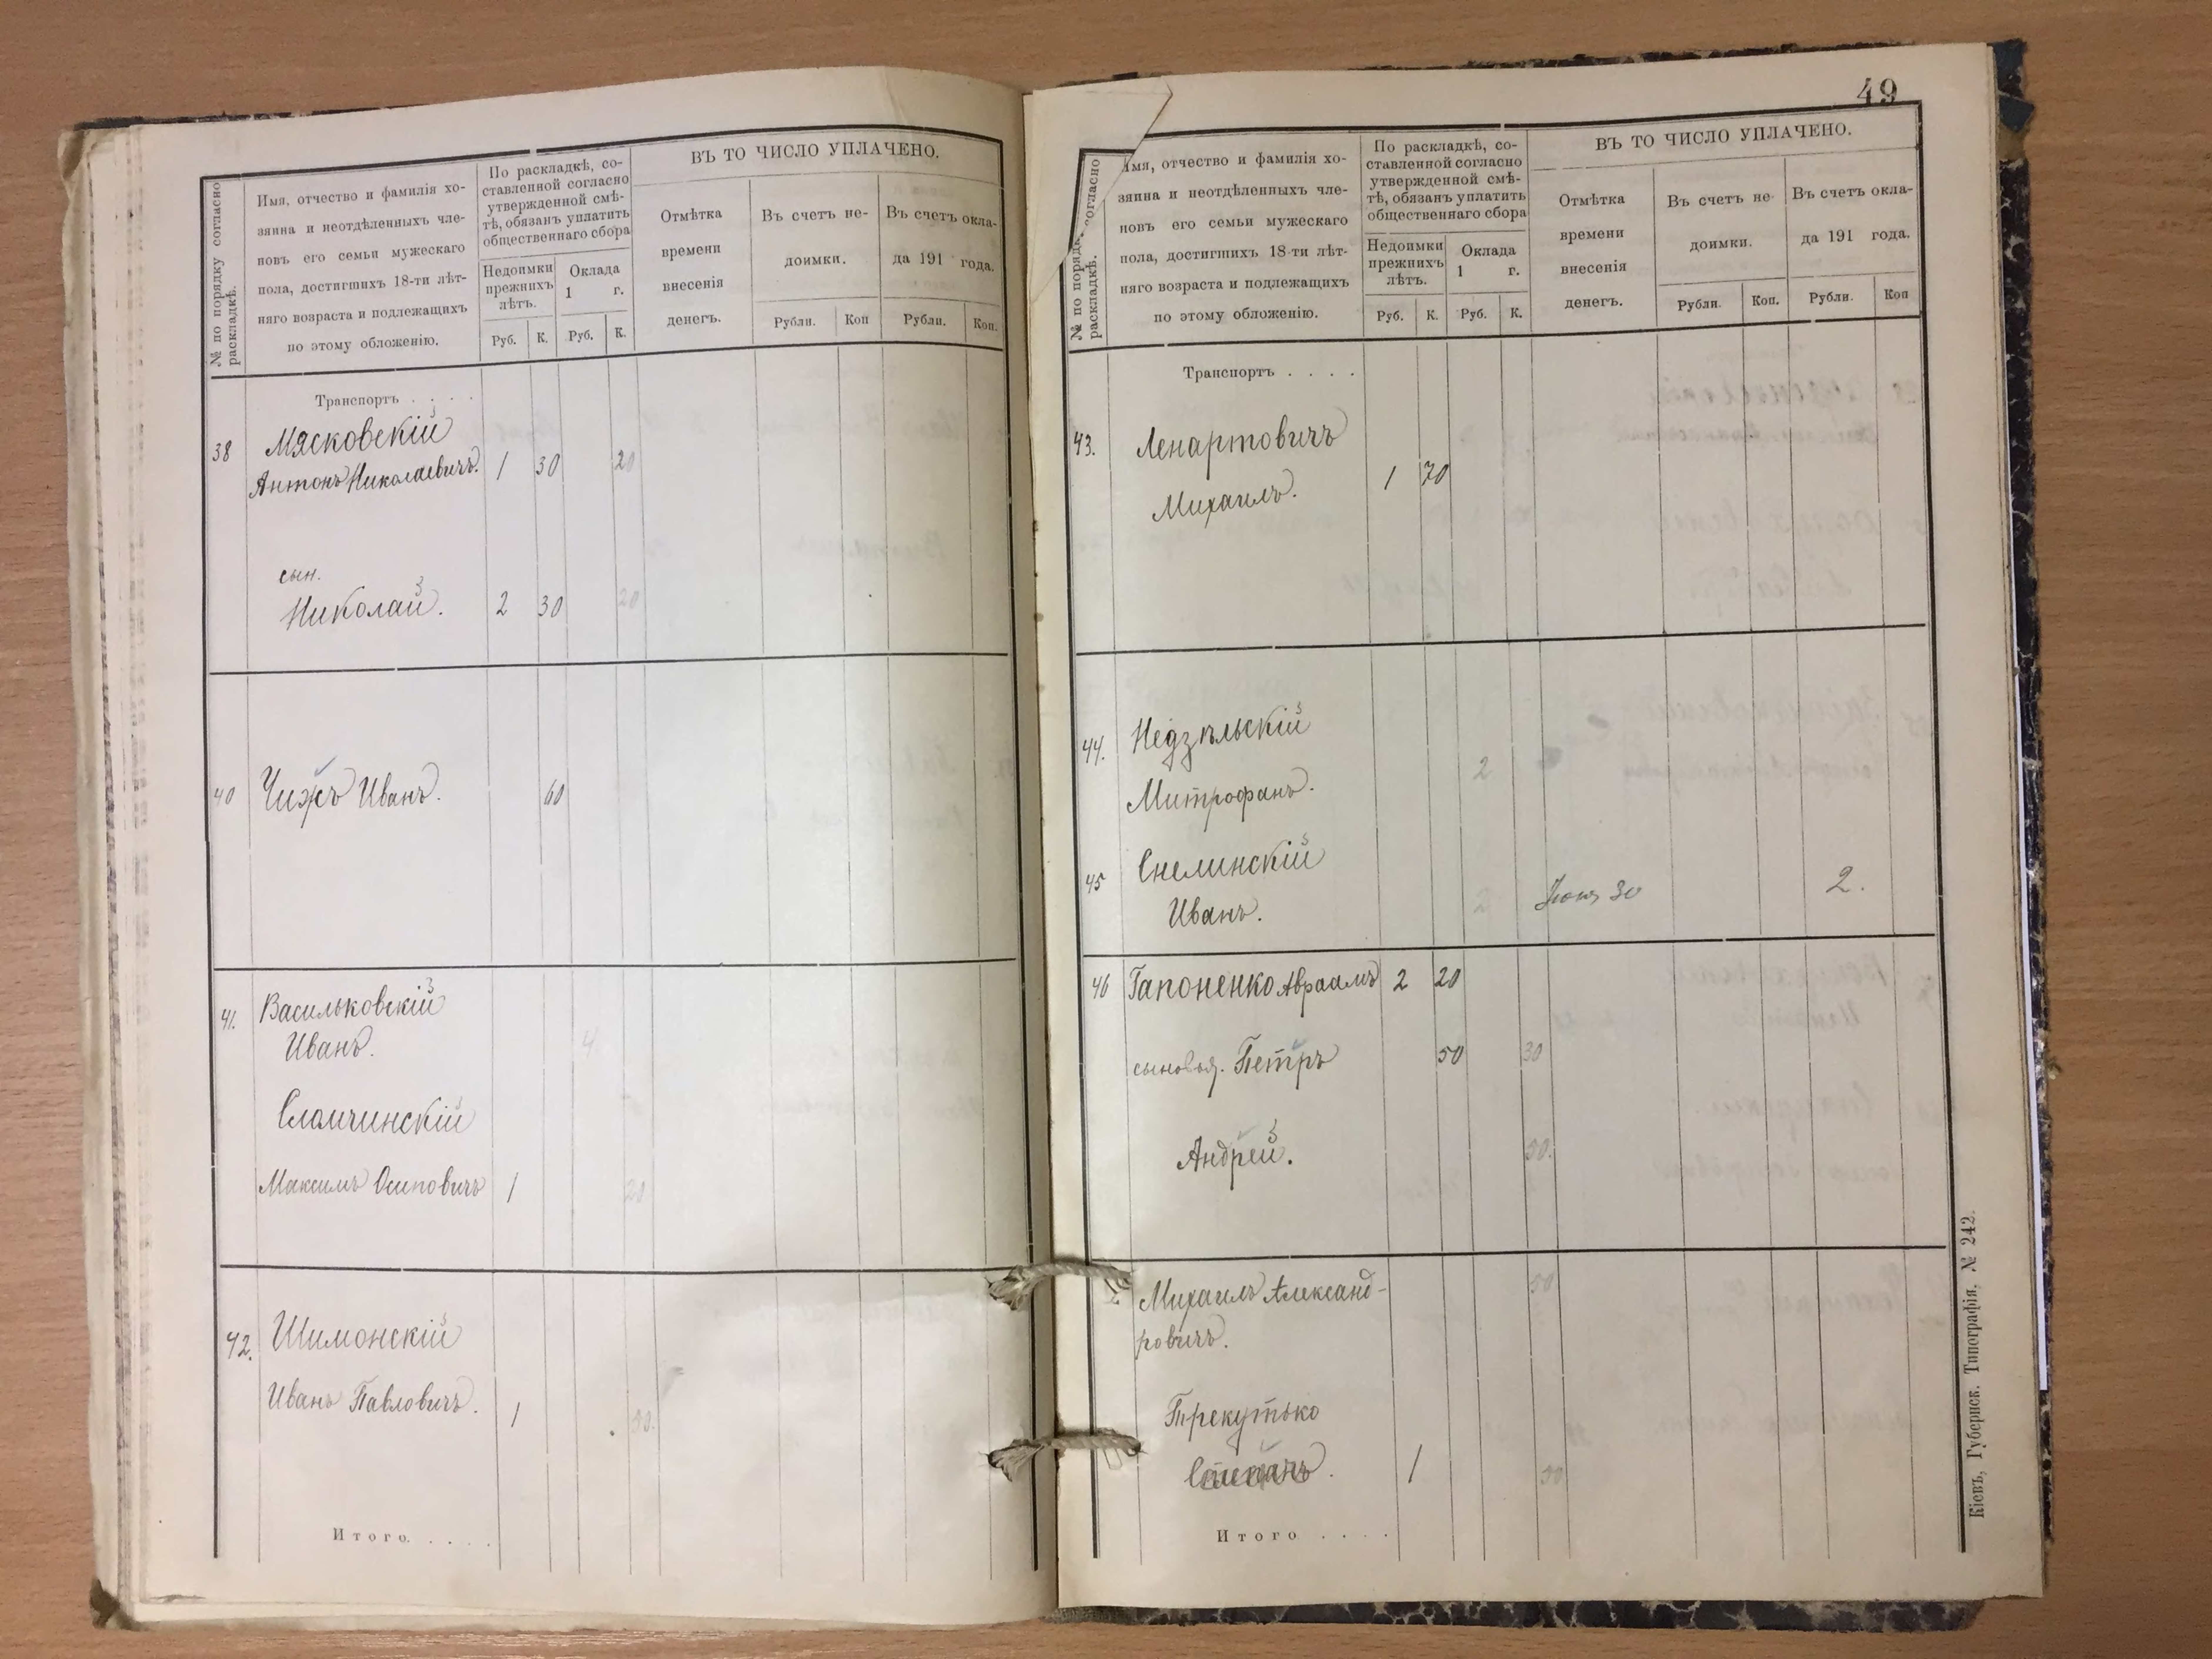 № по порядку согласно раскладкѣ.
Имя, отчество и фамилія хо-
зяина и неотдѣленныхъ чле-
новъ его семьи мужескаго
пола, достигшихъ 18-ти лѣт-
няго возраста и подлежащихъ
по этому обложенію.
По раскладкѣ, со-
ставленной согласно
утвержденной смѣ-
тѣ, обязанъ уплатить
общественнаго сбора
Недоимки
прежнихъ
лѣтъ.
Оклада
1 г.
Руб. К. Руб. К.
ВЪ ТО ЧИСЛО УПЛАЧЕНО.
Отмѣтка
времени
внесенія
денегъ.
Въ счетъ не-
доимки.
Въ счетъ окла-
да 191 года.
Рубли. Коп Рубли. Коп.
Транспортъ . . . .
38 Мясковскій
Антонъ Николаевичъ. 1 30 20
сын.
Николай. 2 30 20
40 Чижъ Иванъ. 60
41. Васильковскій
Иванъ. 4
Сломчинскій
Максимъ Осиповичъ 1 20
42. Шимонскій
Иванъ Павловичъ. 1 30.
Итого. . . . .
49
№ по поряд согласно
раскладкѣ.
Имя, отчество и фамилія хо-
зяина и неотдѣленныхъ чле-
новъ его семьи мужескаго
пола, достигшихъ 18-ти лѣт-
няго возраста и подлежащихъ
по этому обложенію.
По раскладкѣ, со-
ставленной согласно
утвержденной смѣ-
тѣ, обязанъ уплатить
общественнаго сбора
Недоимки
прежнихъ
лѣтъ.
Оклада
1 г.
Руб. К. Руб. К.
ВЪ ТО ЧИСЛО УПЛАЧЕНО.
Отмѣтка
времени
внесенія
денегъ.
Въ счетъ не-
доимки.
Въ счетъ окла-
да 191 года.
Рубли. Коп. Рубли. Коп
Транспортъ . . . .
43. Ленартовичъ
Михаилъ. 1 70
44. Недзѣльскій
2
Митрофанъ.
45 Снелинскій
Иванъ. 2 30 2.
46 Гапоненко Авраамъ 2 20
сыновья. Петръ 50 30
Андрей. 30.
Михаилъ Александ- 50
ровичъ.
Трекутько
Степанъ. 1 30
Итого . . . .
Кіевъ, Губернск. Типографія, № 242.